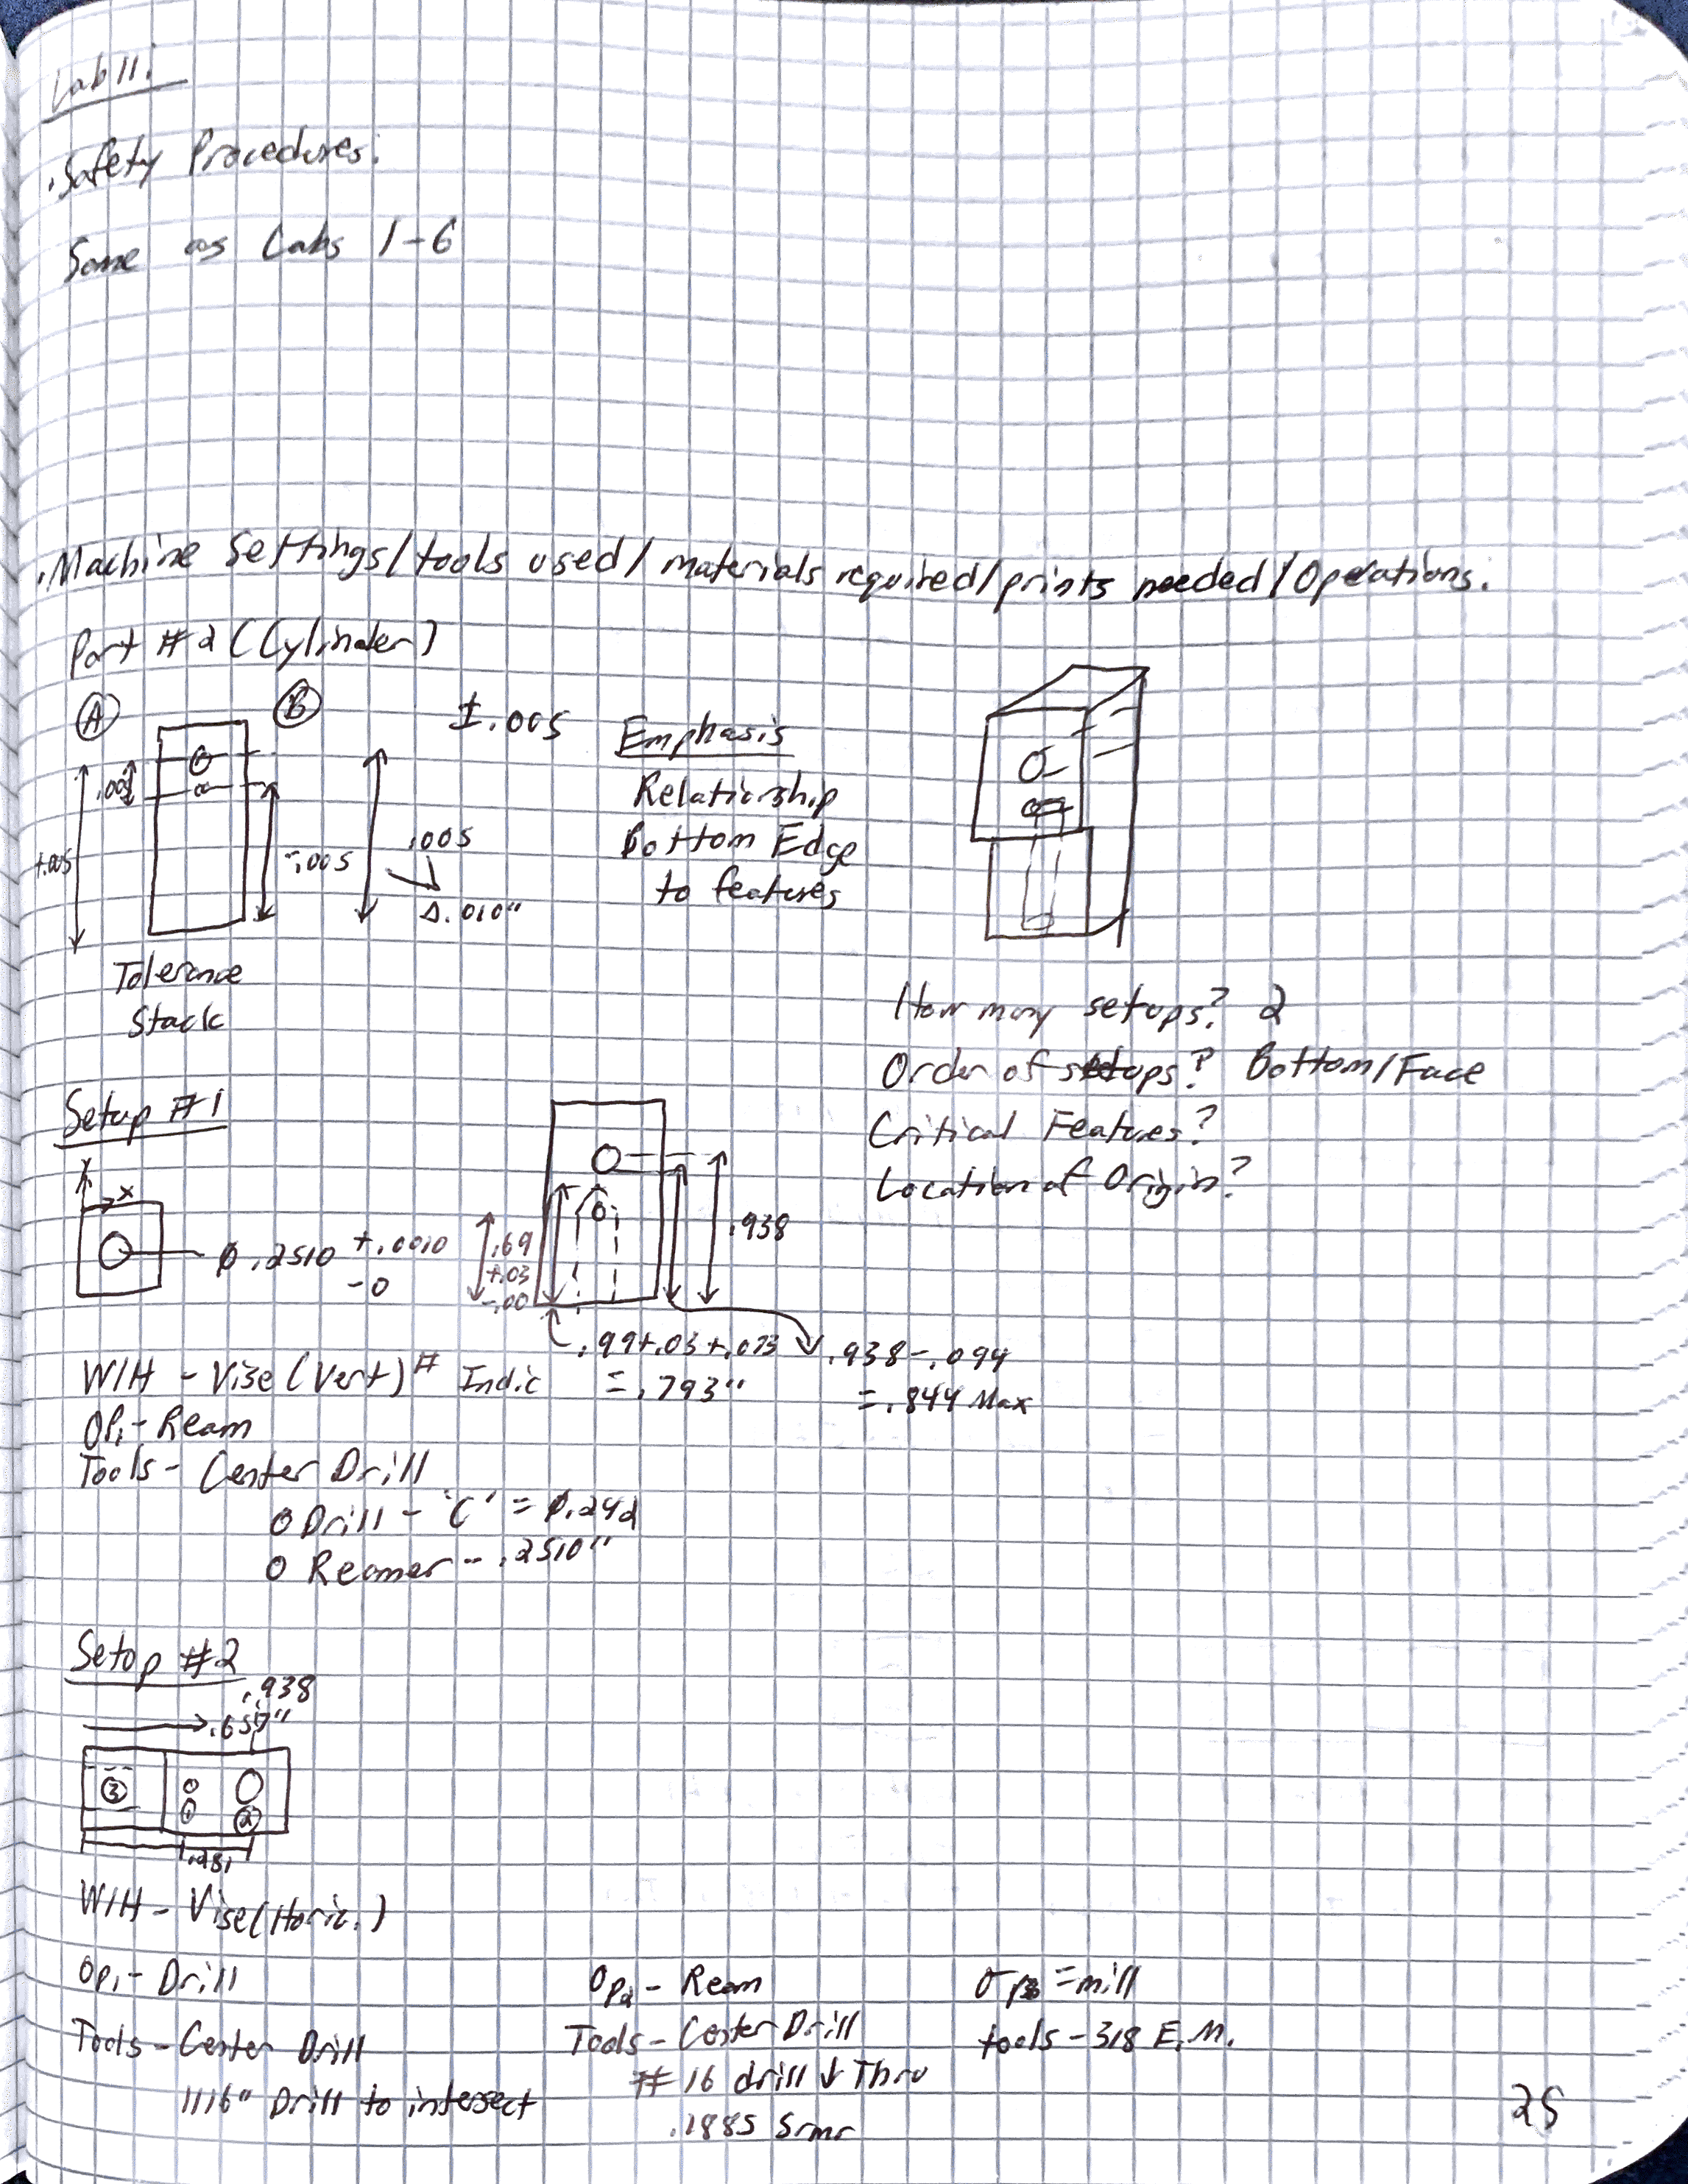 Lab 11.
·Safety Procedures.
Same as Labs 1-6
·Machine Settings/tools used/materials required/prints needed/Operations.
Part #2 (Cylinder)
Ⓐ Ⓑ ±.005
+.005
-.005
.005
Δ.010"
Tolerance
Stack
Emphasis
Relationship
Bottom Edge
to features
How many setups? 2
Order of setups? Bottom/Face
Critical Features?
Location of Origin?
Setup #1
Y
X
ø.2510 +.0010
-0
.69
+.03
-.00
.938
.99+.03+.073
=.793"
.938-.094
=.844 Max
W/H - Vise (Vert) # Indic
OP₁- Ream
Tools- Center Drill
O Drill - 'C' = ø.242
O Reamer - .2510"
Setup #2
.938
.657"
③
① ②
.281
W/H - Vise (Horiz.)
Op₁- Drill
Tools - Center Drill
1/16" Drill to intersect
Op₂- Ream
Tools - Center Drill
#16 drill ↓ Thru
.1885
Op₃ = mill
tools - 3/8 E.M.
25